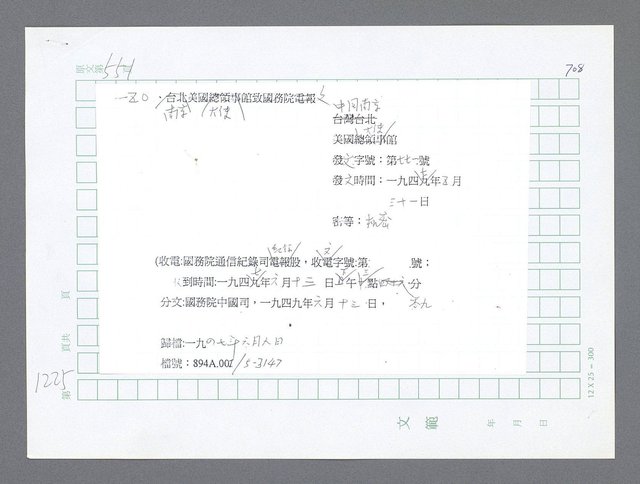 原文第551頁
708
一五〇、台北美國總領事館致國務院電報
南京 大使
中國南京
台灣台北
大使
美國總領事館
發文字號：第七七一號
發文時間：一九四九年五月
三十一日
密等：機密
紀錄 文
(收電:國務院通信紀錄司電報股，收電字號:第 號；
收到時間:一九四九年六月十三日 午 點 分
分文:國務院中國司，一九四九年六月十三日，
歸檔:一九四七年六月八日
檔號：894A.002/5-3147
頁
頁共
1225
第
12 X 25 = 300
文範 年 月 日